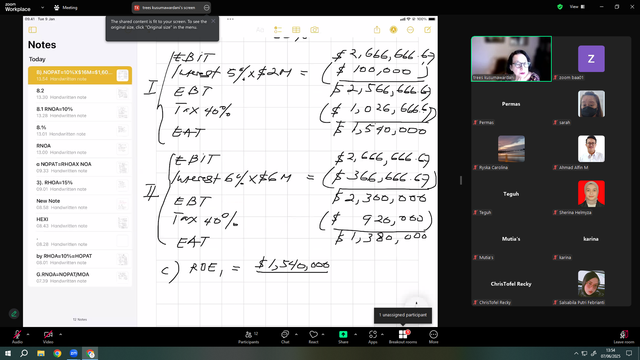 zoom
Workplace
trees kusumawardani's screen
The shared content is fit to your screen. To see the
original size, click "Original size" in the menu.
09.41 Tue 9 Jan
Notes
Today
8) NOPAT=10%X$16M=$1,60...
13.54 Handwritten note
8.2
13.30 Handwritten note
8.1 RNOA=10%
13.28 Handwritten note
8.%
13.01 Handwritten note
RNOA
13.00 Handwritten note
a NOPAT=RHOAX NOA
3). RHOA=15%
New Note
HEXI
by RHOA=10%=HOPAT
G.RNOA=NOPAT/MOA
12 Notes
I
EBIT $2,666,666.67
Interest 5% X $2M = ($ 100,000)
EBT $2,566,666.67
Tax 40% ($ 1,026,666.67)
EAT $1,540,000
II
EBIT $2,666,666.67
Interest 6% X $6M = ($366,666.67)
EBT $2,300,000
Tax 40% ($ 920,000)
EAT $1,380,000
c) ROE1 = $1,540,000
trees Kusumawardani
Z
zoom baa01
Permas
Permas
sarah
Ryska Carolina
Ahmad Alfin M
Teguh
Teguh
Sherina Helmyza
Mutia's
Mutia's
karina
karina
ChrisTofel Recky
ChrisTofel Recky
Salsabila Putri Febrianti
1 unassigned participant
Audio
Video
Participants
Chat
React
Share
Apps
Breakout rooms
More
Leave room
13:54
07/08/2025